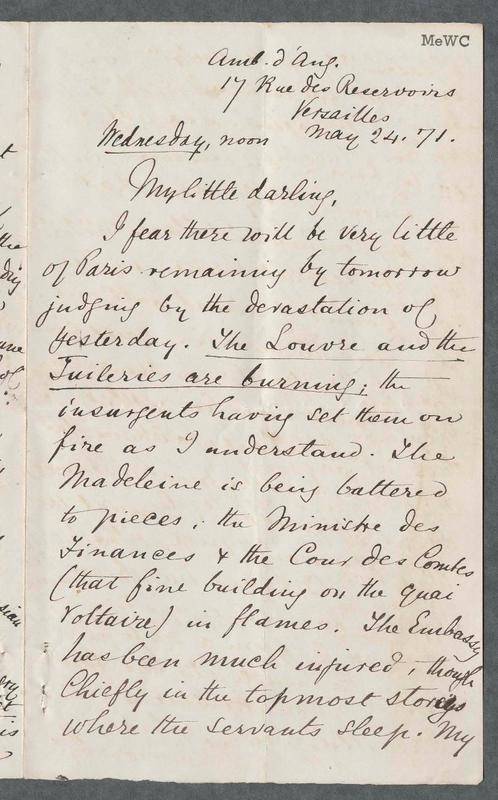 MeWC
Amb. d'Ang.
17 Rue des Reservoirs
Versailles
Wednesday, noon May 24. 71.
My little darling,
I fear there will be very little
of Paris remaining by tomorrow
judging by the devastation of
yesterday. The Louvre and the
Tuileries are burning; the
insurgents having set them on
fire as I understand. The
Madeleine is being battered
to pieces, the Ministre des
Finances & the Cour des Comtes
(that fine building on the quai
Voltaire) in flames. The Embassy
has been much injured, though
Chiefly in the topmost storeys
where the servants sleep. My